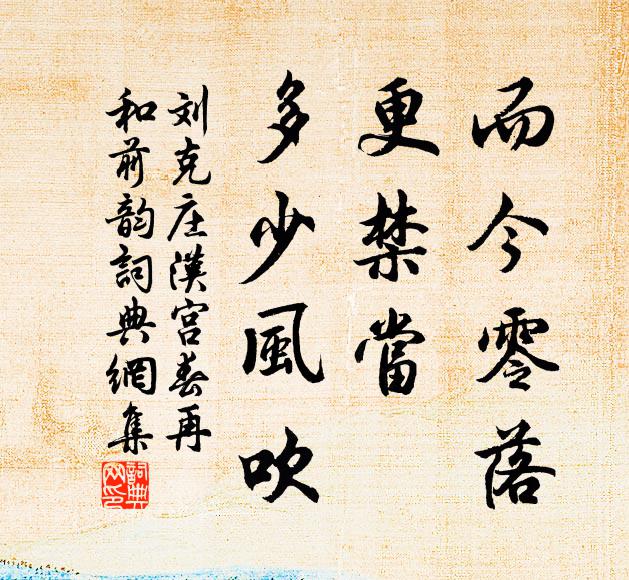 而今零落
更禁當
多少風吹
刘克庄漢宫春再
和前韵詞典網集
詞典
网印